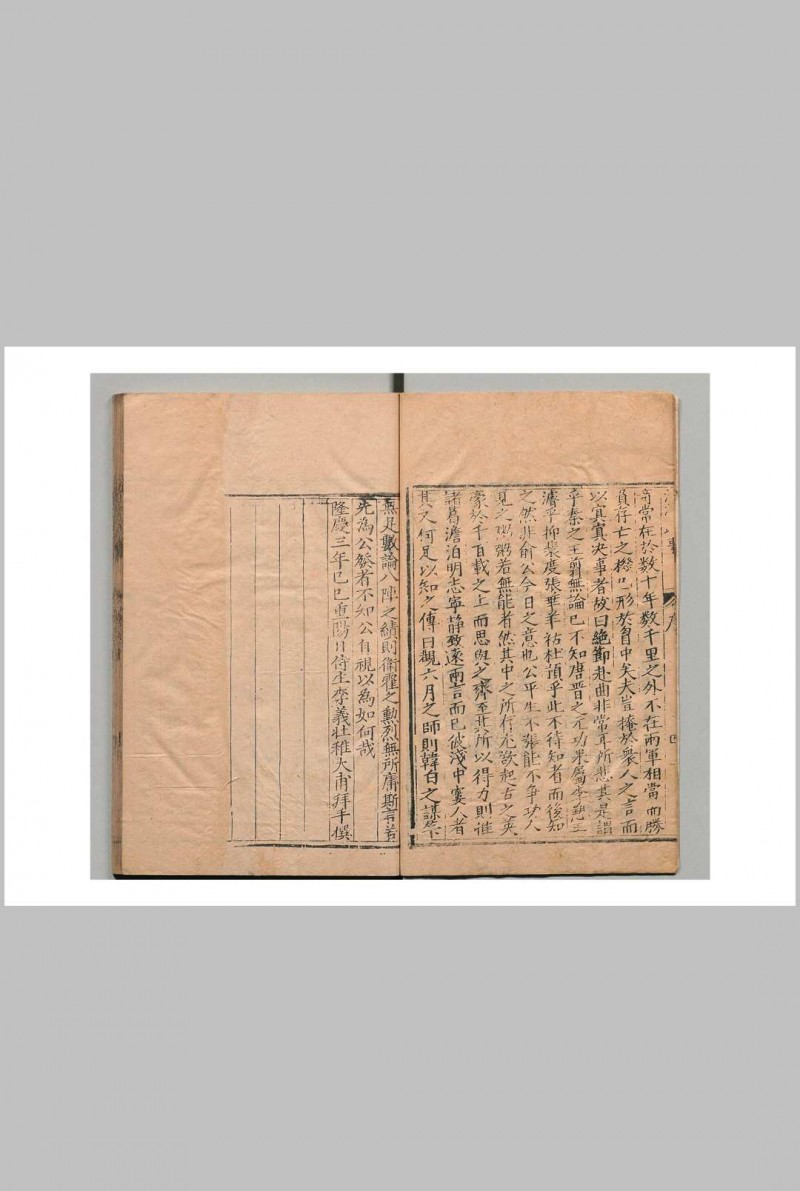 奇常在於数十年数千里之外不在兩軍相當而勝
負存亡之機已形於胷中矣夫豈掩於衆人之言而
以寘寘决事者故曰絶節赴曲非常耳所悲其是謂
乎秦之王翦無論已不知唐晋之元功果屬李愬王
濬乎抑裴度張華羊祜杜預乎此不待知者而後知
之然非俞公今日之意也公平生不張能不争功人
見之粥粥若無能者然其中之所存
豪於千百載之上而思與之齊至其所以得力則誰
諸葛澹泊明志寧静致遠兩言而已彼淺中窶人者
其又何足以知之傳曰觀六月之師則韓白之謀
無足數論八陣之績則衛霍之勳烈無所庸斯言若
先為公發者不知公自視以為如何哉
隆慶三年己巳重陽日侍生李義壯稚大甫拜手撰